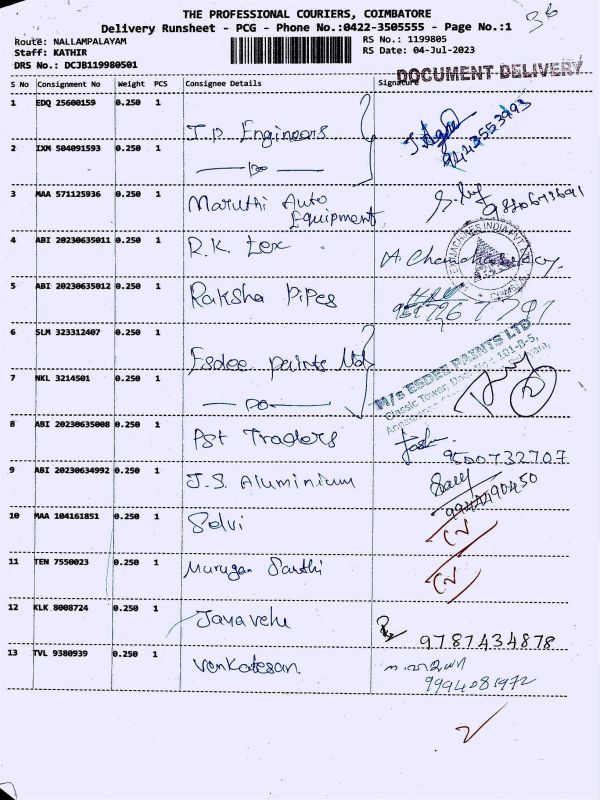 THE PROFESSIONAL COURIERS, COIMBATORE
Delivery Runsheet - PCG - Phone No.:0422-3505555 - Page No.:1
Route: NALLAMPALAYAM
Staff: KATHIR
DRS No.: DCJB119980501
RS No.: 1199805
RS Date: 04-Jul-2023
DOCUMENT DELIVERY
S No Consignment No Weight PCS Consignee Details Signature
1 EDQ 25600159 0.250 1 J.P. Engineers
2 IXM 504091593 0.250 1 -Do-
3 MAA 571125936 0.250 1 Maruthi Auto Equipment
4 ABI 20230635011 0.250 1 R.K. Tex
5 ABI 20230635012 0.250 1 Raksha Pipes
6 SLM 323312407 0.250 1 Esdee paints
7 NKL 3214501 0.250 1 -DO-
M/s ESDEE PAINTS LTD
8 ABI 20230635008 0.250 1 Traders
9500732707
9 ABI 20230634992 0.250 1 J.S. Aluminium
10 MAA 104161851 0.250 1 Selvi
11 TEN 7550023 0.250 1 Murugan
12 KLK 8008724 0.250 1 Jayavelu
9787434878
13 TVL 9380939 0.250 1 Venkatesan
9994081972